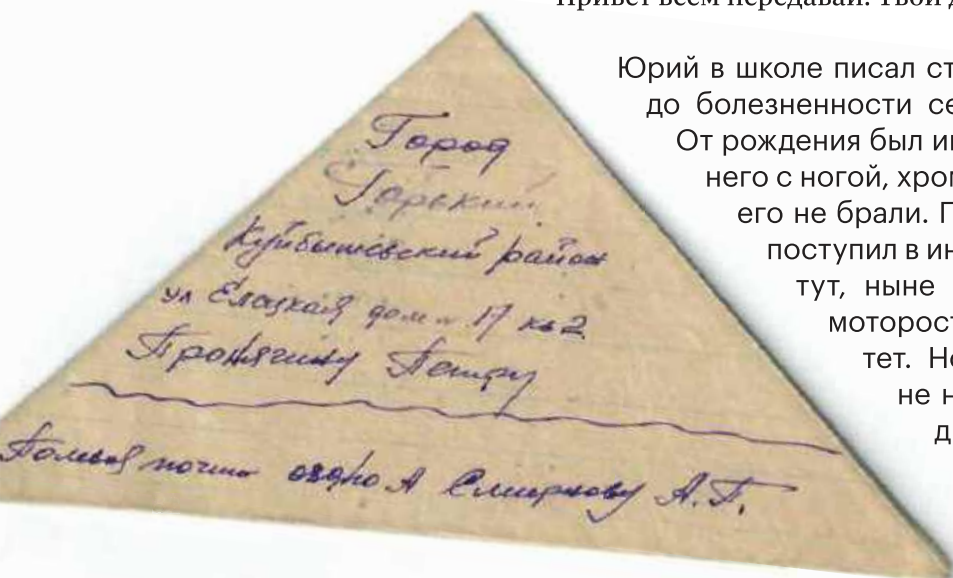 Привет всем передавай. Твой д
Юрий в школе писал ст
до болезненности се
От рождения был ин
него с ногой, хром
его не брали. П
поступил в ин
тут, ныне
моторост
тет. Но
не н
д
Город
Куйбышевский район
ул Елецкая дом 17 кв 2
Пронягину Петру
Полевая почта Смирнову А.П.